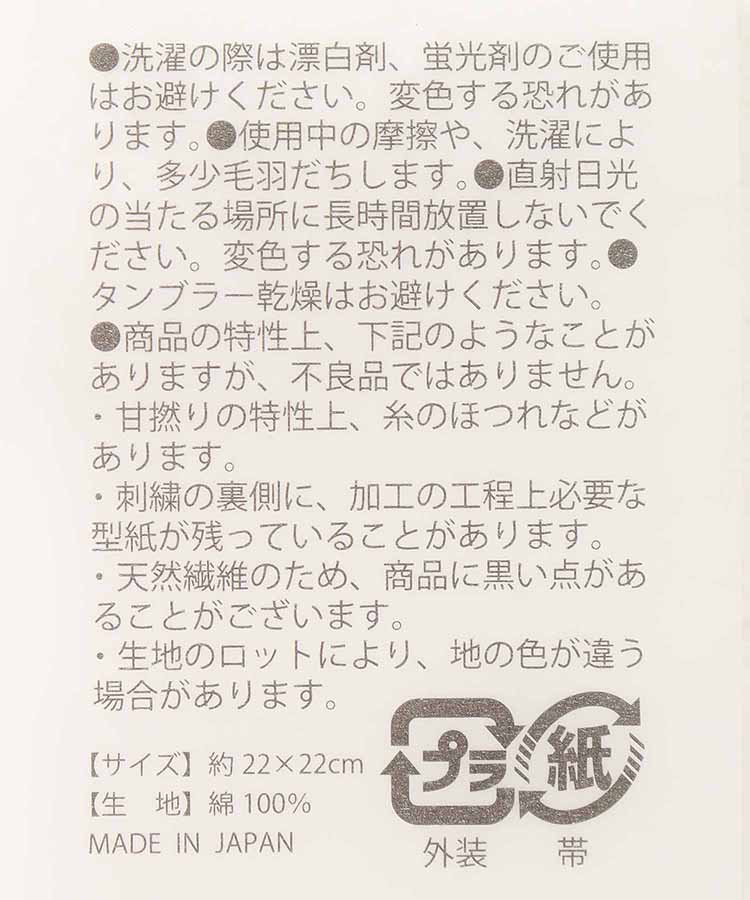 ●洗濯の際は漂白剤、蛍光剤のご使用
はお避けください。変色する恐れがあ
ります。●使用中の摩擦や、洗濯によ
り、多少毛羽だちします。●直射日光
の当たる場所に長時間放置しないでく
ださい。変色する恐れがあります。●
タンブラー乾燥はお避けください。
●商品の特性上、下記のようなことが
ありますが、不良品ではありません。
・甘撚りの特性上、糸のほつれなどが
あります。
・刺繍の裏側に、加工の工程上必要な
型紙が残っていることがあります。
・天然繊維のため、商品に黒い点があ
ることがございます。
・生地のロットにより、地の色が違う
場合があります。
【サイズ】約22×22cm
【生　地】綿100%
MADE IN JAPAN
プラ 紙
外装 帯